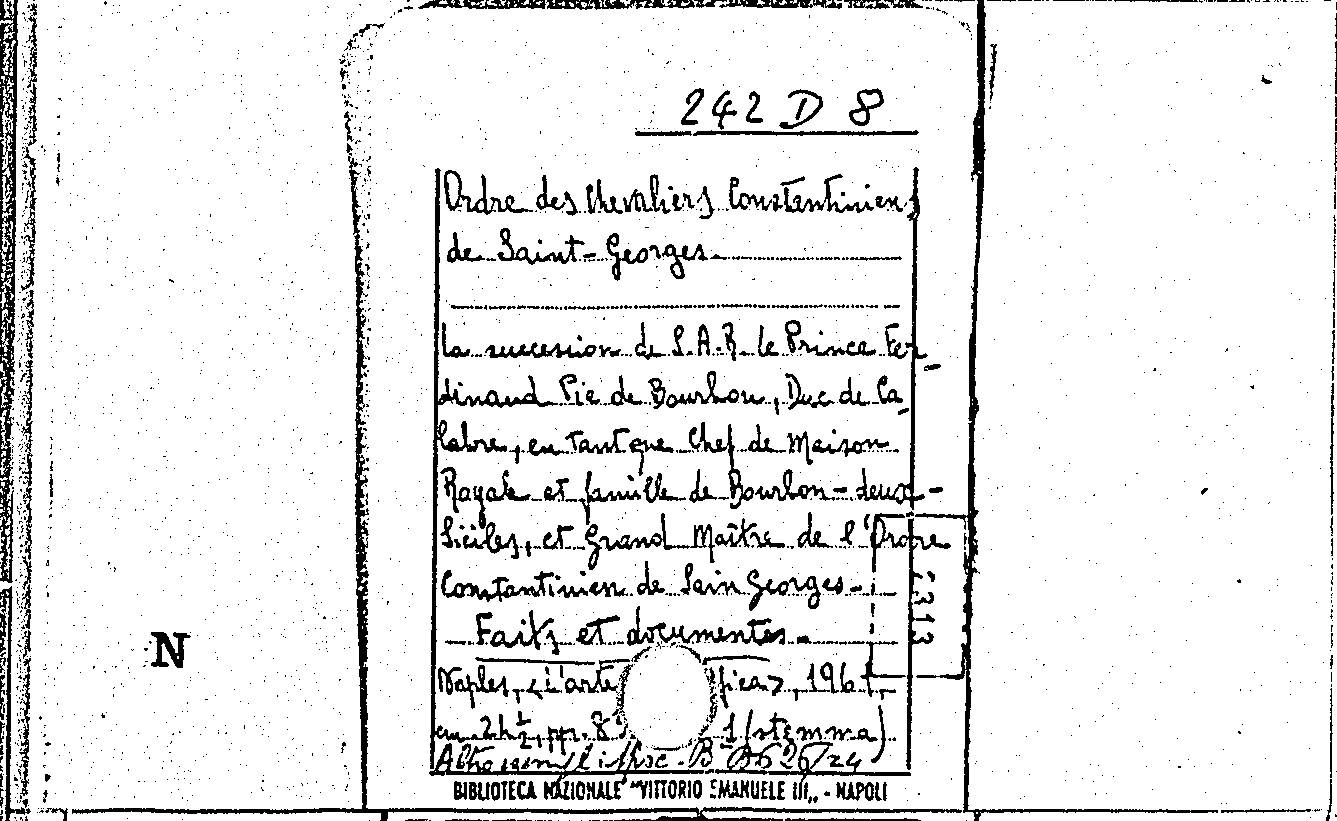 242 D 8
Ordre des Chevaliers Constantiniens
de Saint-Georges.
La succession de S.A.R. le Prince Fer-
dinand Pie de Bourbon, Duc de Ca-
labre, en tant que Chef de Maison
Royale et famille de Bourbon-deux-
Siciles, et Grand Maître de l'Ordre
Constantinien de Sain Georges.
Faits et documentes.
Naples, "L'arte fica", 196
cm. 24½, pp. 8 1 (stemma)
Altro
2313
N
BIBLIOTECA NAZIONALE "VITTORIO EMANUELE III" - NAPOLI